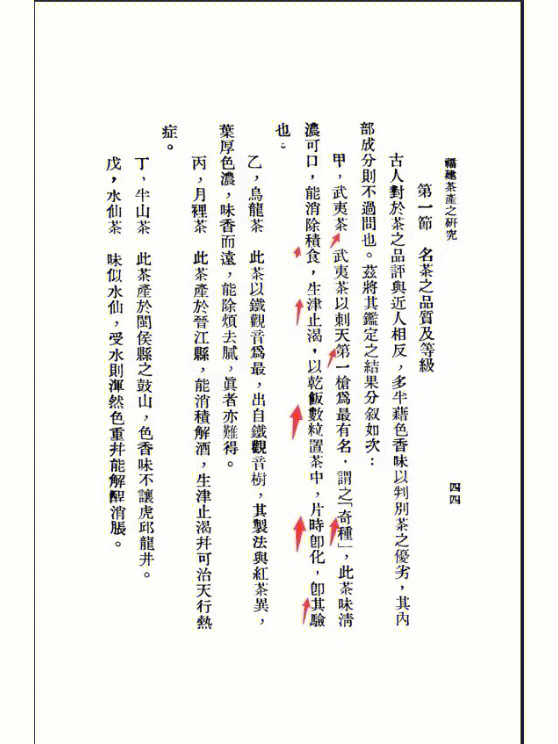 福建茶產之硏究
四四
第一節　名茶之品質及等級
古人對於茶之品評與近人相反，多半藉色香味以判別茶之優劣，其內
部成分則不過問也。茲將其鑑定之結果分叙如次：
甲，武夷茶　武夷茶以刺天第一槍爲最有名．謂之「奇種」，此茶味淸
濃可口，能消除積食，生津止渴，以乾飯數粒置茶中，片時卽化，卽其驗
也．
乙，烏龍茶　此茶以鐵觀音爲最，出自鐵觀音樹，其製法與紅茶異，
葉厚色濃，味香而遠，能除煩去膩，眞者亦難得。
丙，月裡茶　此茶產於晉江縣，能消積解酒，生津止渴幷可治天行熱
症。
丁，半山茶　此茶產於閩侯縣之鼓山，色香味不讓虎邱龍井。
戊，水仙茶　味似水仙，受水則渾然色重幷能解酲消脹。